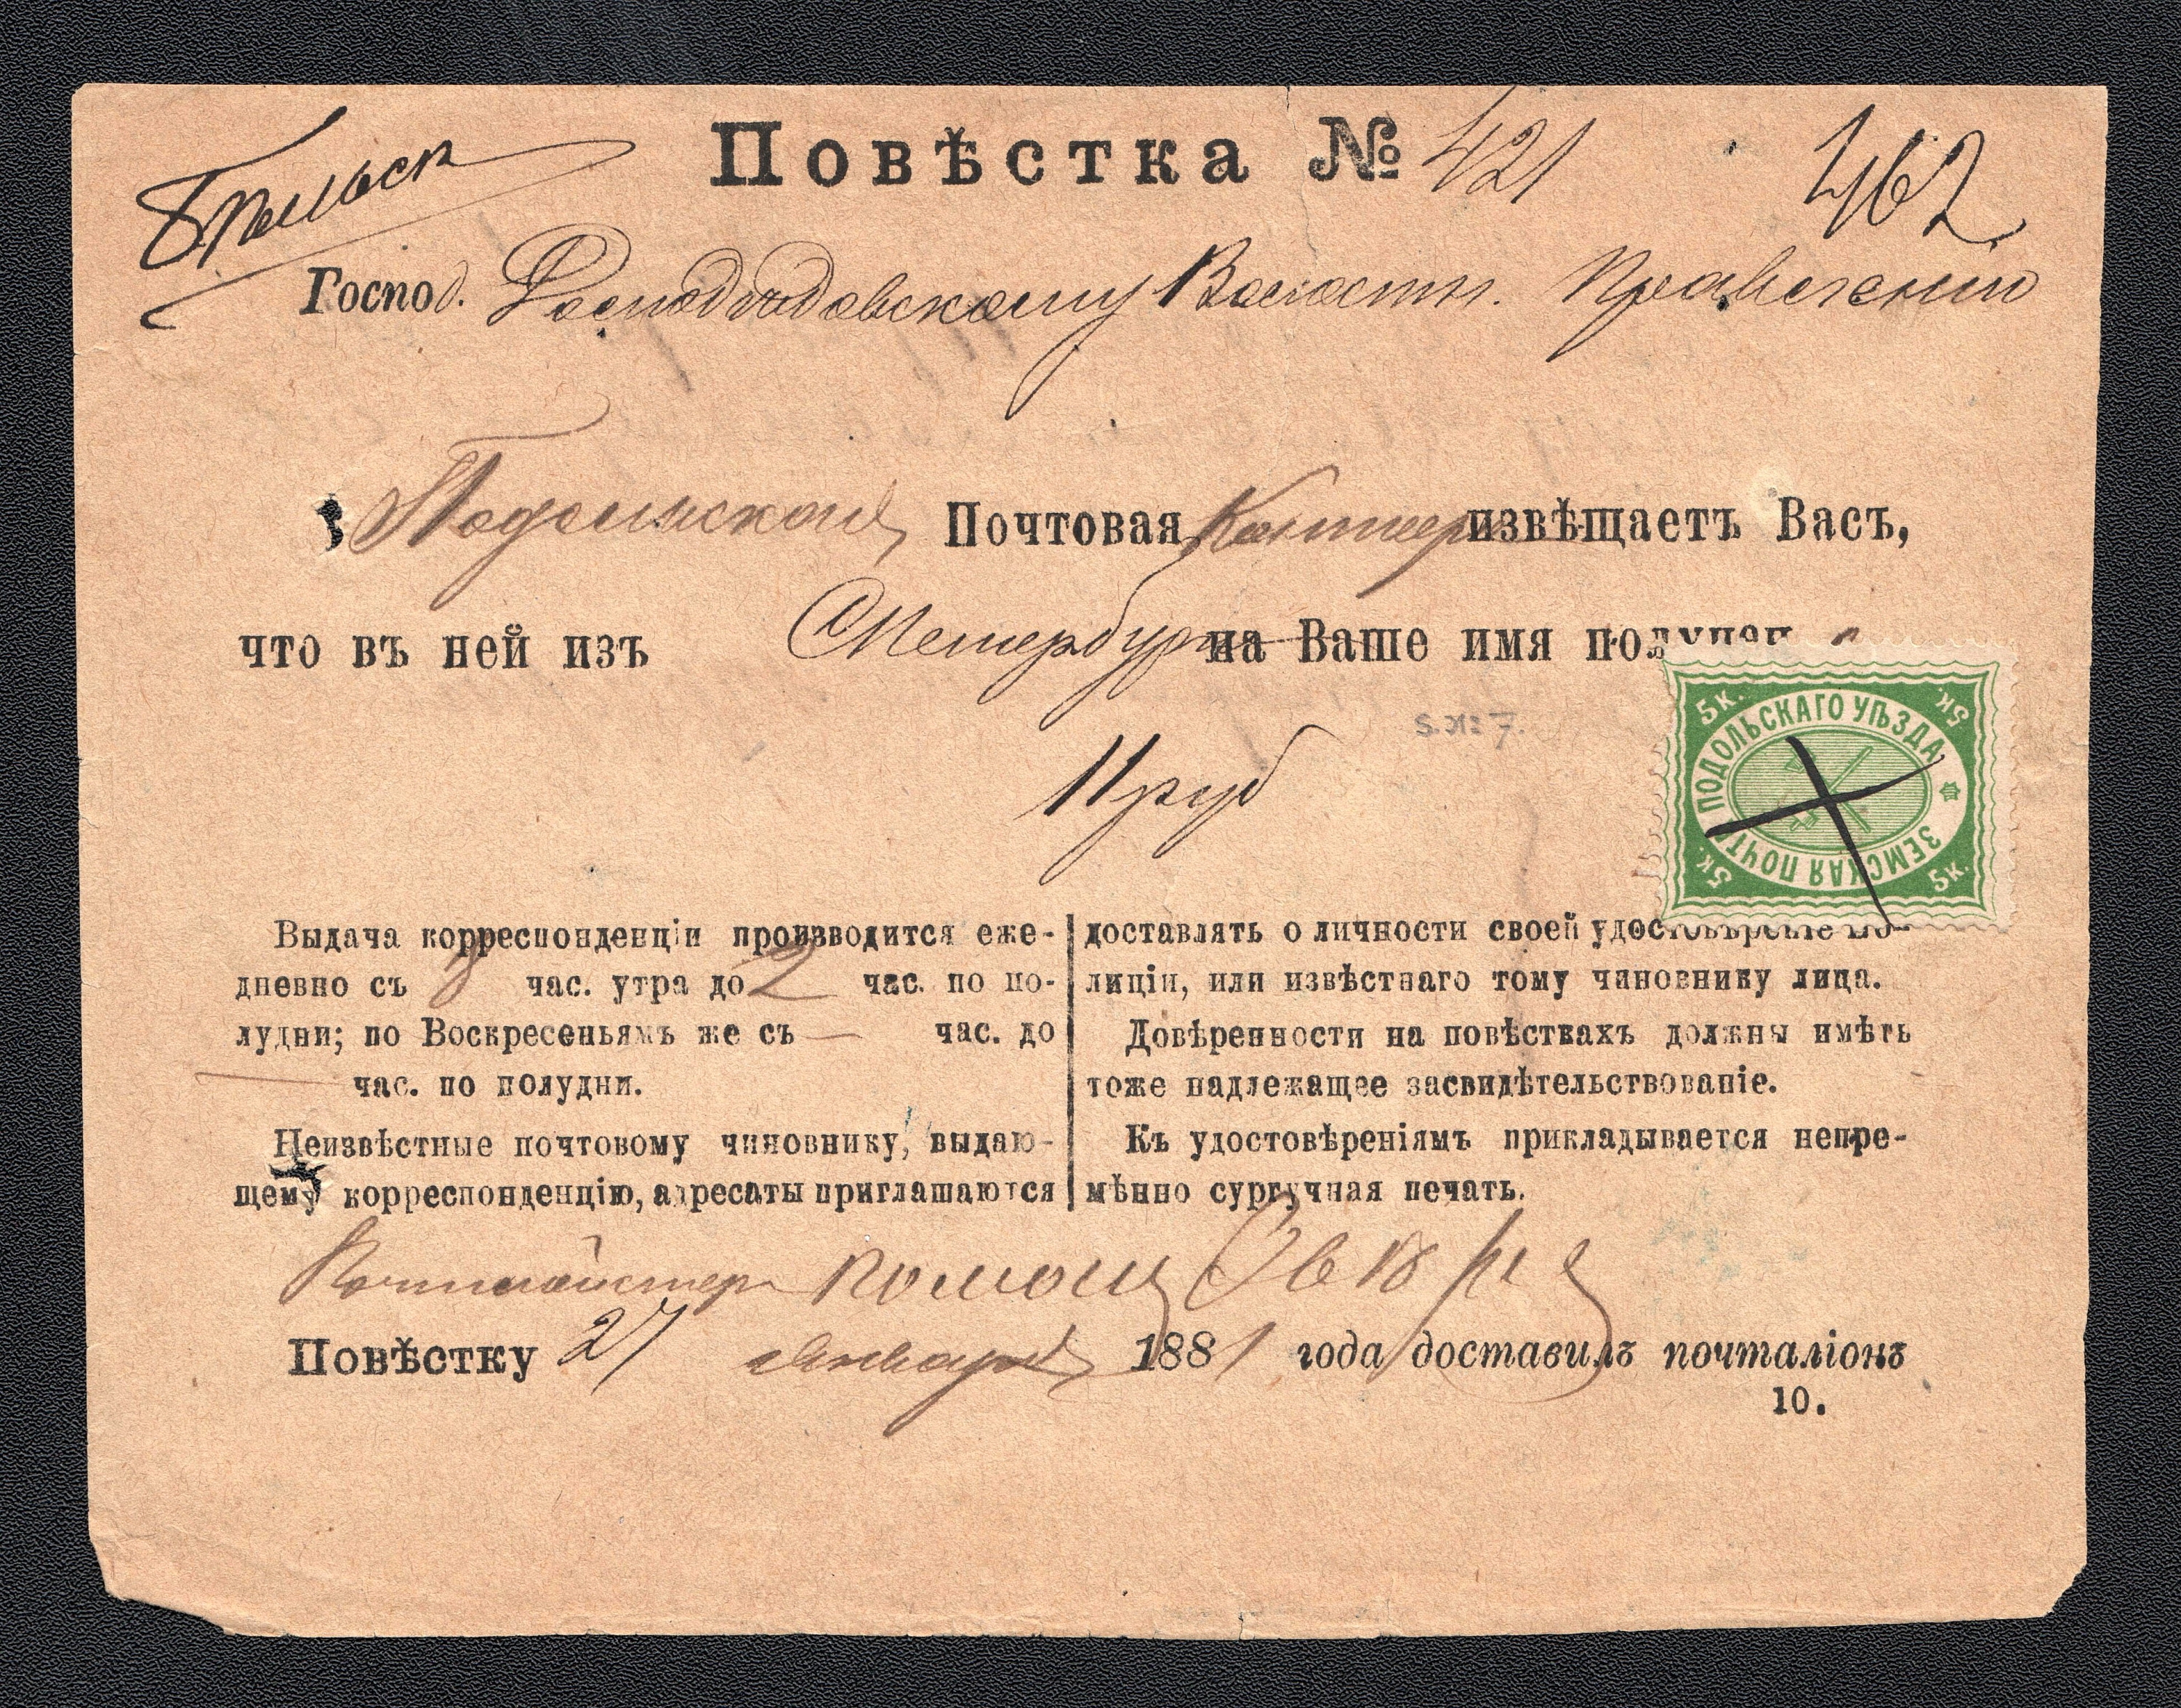 Повѣстка № 421
462
Господ. Волостн. Правленію
Подольская Почтовая Контора извѣщаетъ Васъ,
что въ ней изъ СПетербурга на Ваше имя получен
S. № 7.
11 руб
ПОДОЛЬСКАГО УѢЗДА
ЗЕМСКАЯ ПОЧТА
5 К. 5 К. 5 К. 5 К.
Выдача корреспонденціи производится еже-
дневно съ 8 час. утра до 2 час. по по-
лудни; по Воскресеньямъ же съ — час. до
— час. по полудни.
Неизвѣстные почтовому чиновнику, выдаю-
щему корреспонденцію, адресаты приглашаются
доставлять о личности своей удостовѣреніе по-
лиціи, или извѣстнаго тому чиновнику лица.
Довѣренности на повѣсткахъ должны имѣть
тоже надлежащее засвидѣтельствованіе.
Къ удостовѣреніямъ прикладывается непре-
мѣнно сургучная печать.
Почтмейстер Помощ
Повѣстку 27 Января 1881 года доставилъ почталіонъ
10.